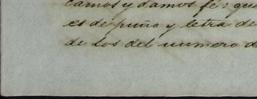 camos y damos fe: que
es de puño y letra de
de los del numero d